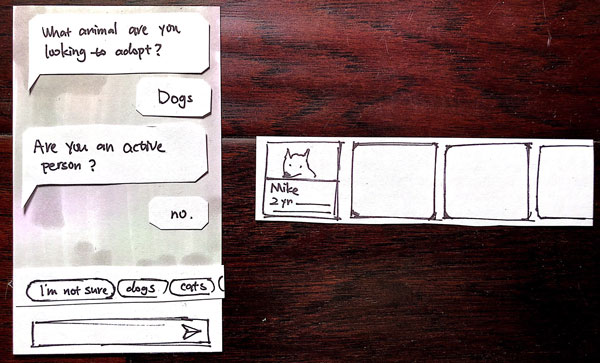 What animal are you
looking to adopt?
Dogs
Are you an active
person?
no.
I'm not sure
dogs
cats
Mike
2 yr